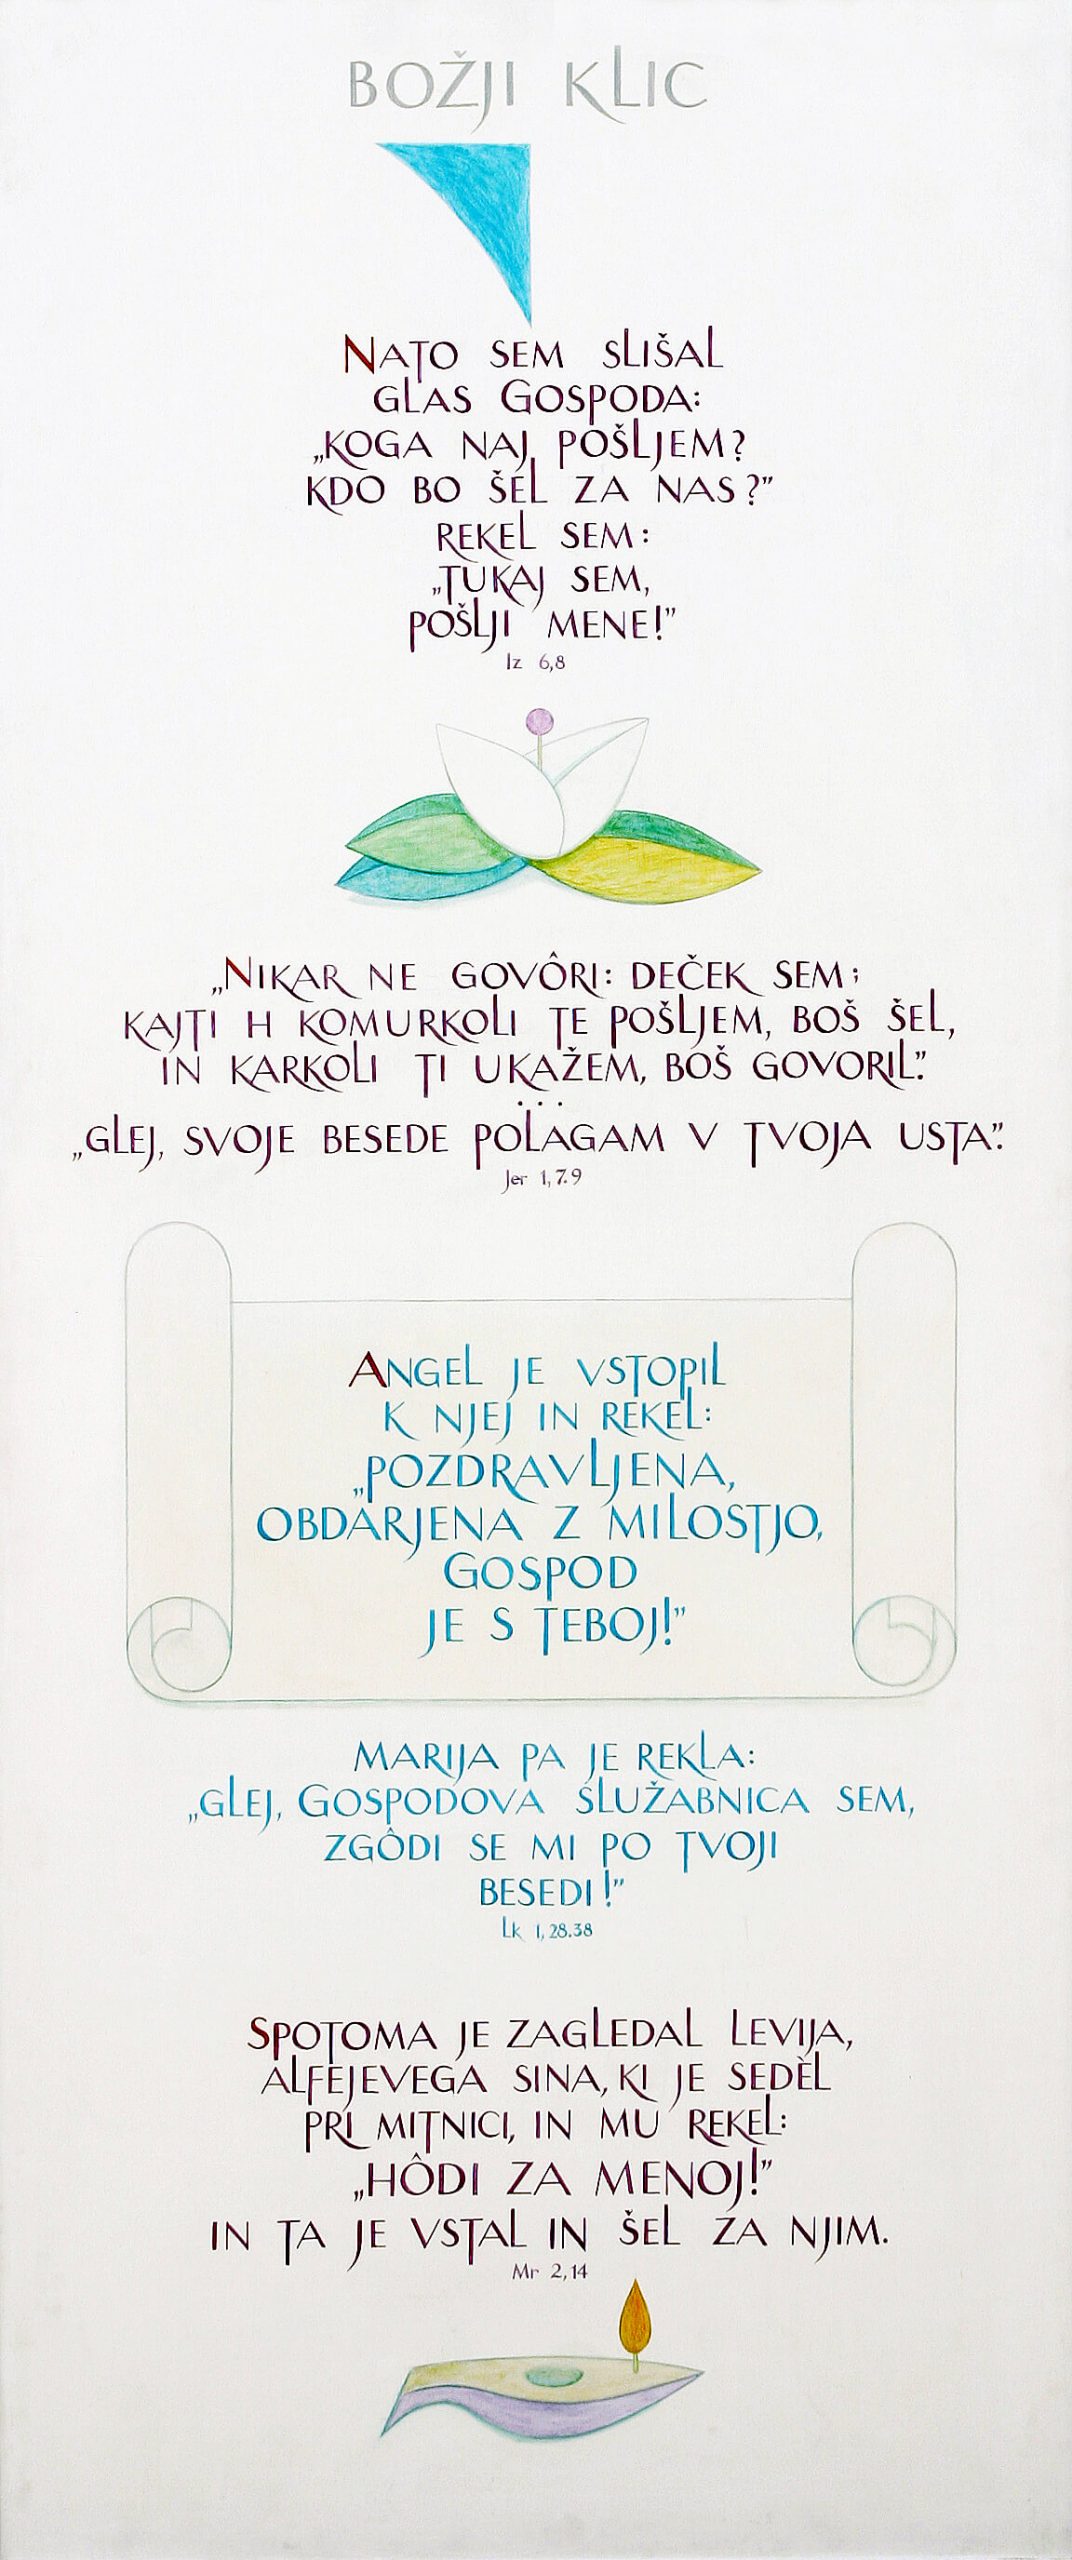 BOŽJI KLIC
NATO SEM SLIŠAL
GLAS GOSPODA:
„KOGA NAJ POŠLJEM?
KDO BO ŠEL ZA NAS?”
REKEL SEM:
„TUKAJ SEM,
POŠLJI MENE!”
Iz 6,8
„NIKAR NE GOVÔRI: DEČEK SEM;
KAJTI H KOMURKOLI TE POŠLJEM, BOŠ ŠEL,
IN KARKOLI TI UKAŽEM, BOŠ GOVORIL.”
...
„GLEJ, SVOJE BESEDE POLAGAM V TVOJA USTA.”
Jer 1,7.9
ANGEL JE VSTOPIL
K NJEJ IN REKEL:
„POZDRAVLJENA,
OBDARJENA Z MILOSTJO,
GOSPOD
JE S TEBOJ!”
MARIJA PA JE REKLA:
„GLEJ, GOSPODOVA SLUŽABNICA SEM,
ZGÔDI SE MI PO TVOJI
BESEDI!”
Lk 1,28.38
SPOTOMA JE ZAGLEDAL LEVIJA,
ALFEJEVEGA SINA, KI JE SEDÈL
PRI MITNICI, IN MU REKEL:
„HÔDI ZA MENOJ!”
IN TA JE VSTAL IN ŠEL ZA NJIM.
Mr 2,14